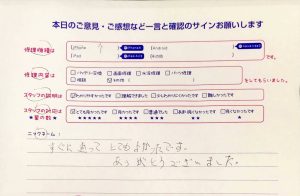 本日のご意見・ご感想など一言と確認のサインお願いします
修理機種は
iPhone
Android
iPad
その他
修理内容は
バッテリー交換 画面修理 水没修理 パーツ修理
相談 その他
をしてもらいました。
スタッフの説明は
わかりやすかったです 理解できました 少しわかりにくかった 難しかったです
スタッフの対応は
とても良かったです 良かったです 普通でした あまり良くなかったです 良くなかったです
★星の数★
★★★★★ ★★★★ ★★★ ★★ ★
ニックネーム：
すぐに あって とても よかったです。
ありがとうございました。